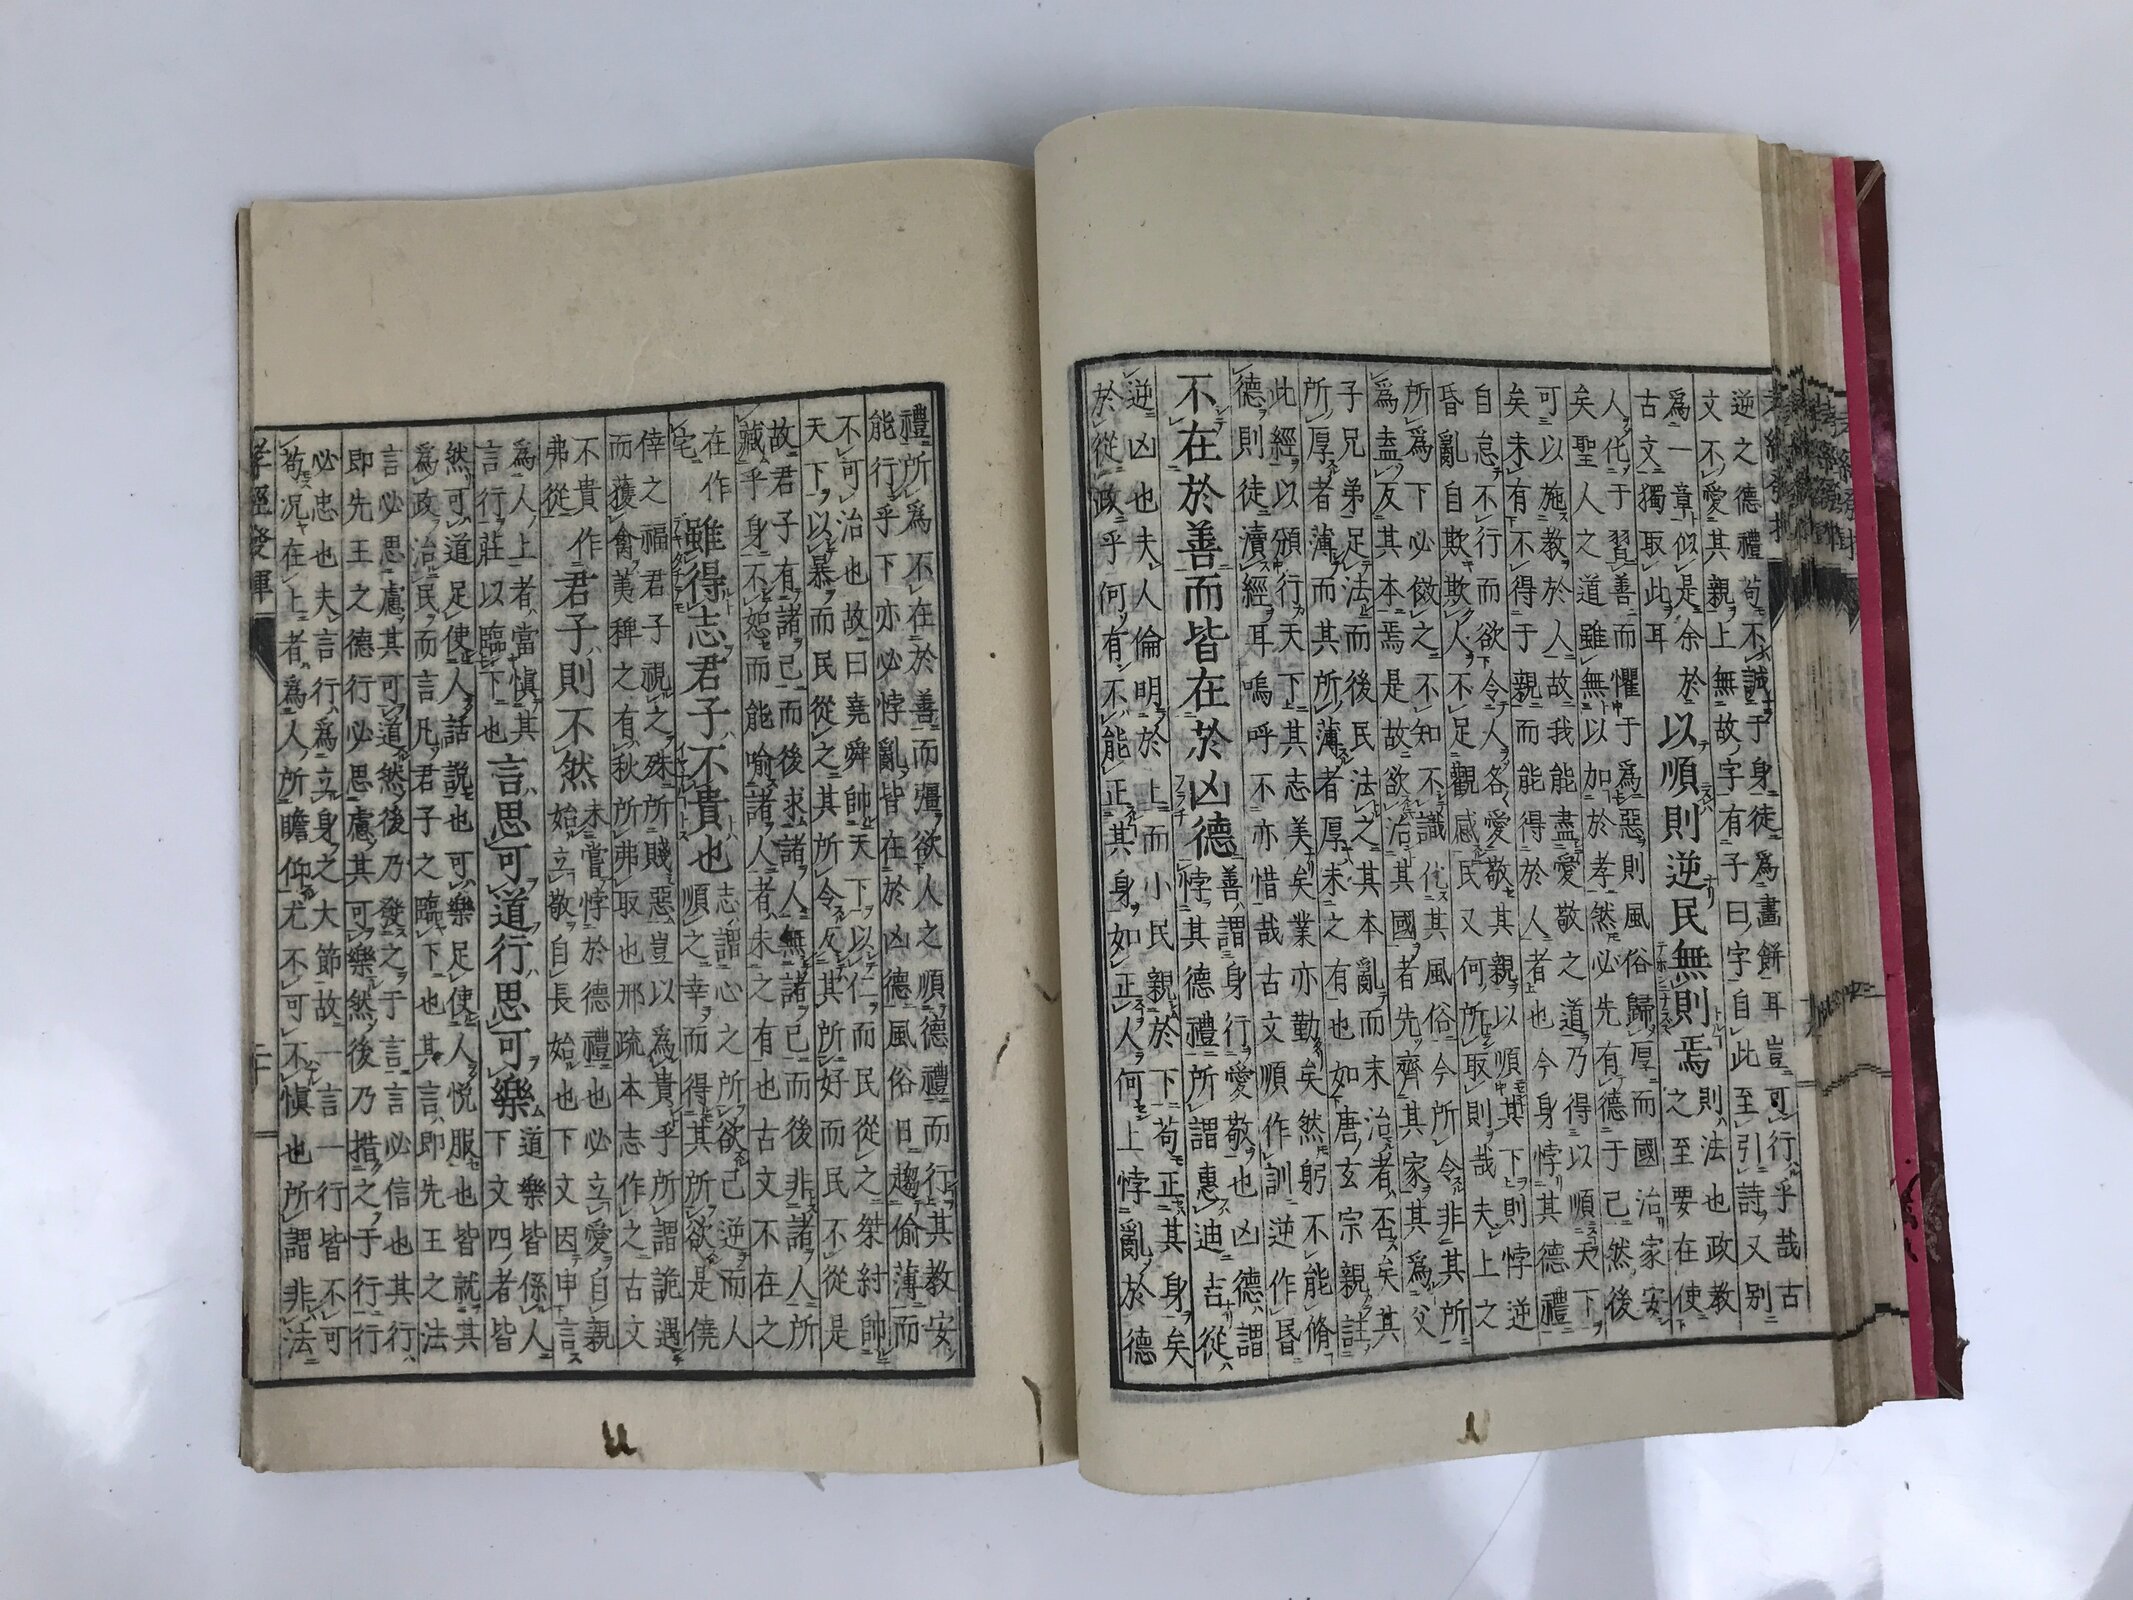 逆之德禮苟不誠于身徒爲畫餅耳豈可行乎哉古
文不愛其親上無故字有子曰字自此至引詩又別
爲一章似是余於
以順則逆民無則焉
則法也政教
之至要在使
古文獨取此耳
人化于習善而懼于爲惡則風俗歸厚而國治家安
矣聖人之道雖無以加於孝然必先有德于己然後
可以施教於人故我能盡愛敬之道乃得以順天下
矣未有不得于親而能得於人者也今身悖其德禮
自怠不行而欲令人各愛敬其親以順其下則悖逆
昏亂自欺欺人不足觀感民又何所取則哉夫上之
所爲下必傚之不知不識代其風俗今所令非其所
爲盍友其本焉是故欲治其國者先齊其家其爲父
子兄弟足法而後民法之其本亂而末治者否矣其
所厚者薄而其所薄者厚未之有也如唐玄宗親註
此經以頒行天下其志美矣業亦勤矣然躬不能脩
德則徒瀆經耳嗚呼不亦惜哉古文順作訓逆作昏
不在於善而皆在於凶德
善謂身行愛敬也凶德謂
悖其德禮所謂惠迪吉從
逆凶也夫人倫明於上而小民親於下苟正其身矣
於從政乎何有不能正其身如正人何上悖亂於德
禮所爲不在於善而彊欲人之順德禮而行其教安
能行乎下亦必悖亂皆在於凶德風俗日趨偷薄而
不可治也故曰堯舜帥天下以仁而民從之桀紂帥
天下以暴而民從之其所令反其所好而民不從是
故君子有諸己而後求諸人無諸己而後非諸人所
藏乎身不恕而能喻諸人者未之有也古文不在之
在作
宅
雖得志君子不貴也
志謂心之所欲己逆而人
順之幸而得其所欲是僥
倖之福君子視之殊所賤惡豈以爲貴乎所謂詭遇
而獲禽荑稗之有秋所弗取也邢疏本志作之古文
不貴作
弗從
君子則不然
未嘗悖於德禮也必立愛自親
始立敬自長始也下文因申言
爲人上者當愼其
言行莊以臨下也
言思可道行思可樂
道樂皆係人
下文四者皆
然可道足使人話説也可樂足使人悅服也皆就其
爲政治民而言凡君子之臨下也其言即先王之法
言必思慮其可道然後乃發之于言言必信也其行
即先王之德行必思慮其可樂然後乃措之于行行
必忠也夫言行爲立身之大節故一言一行皆不可
苟况在上者爲人所瞻仰尤不可不愼也所謂非法
孝經發揮